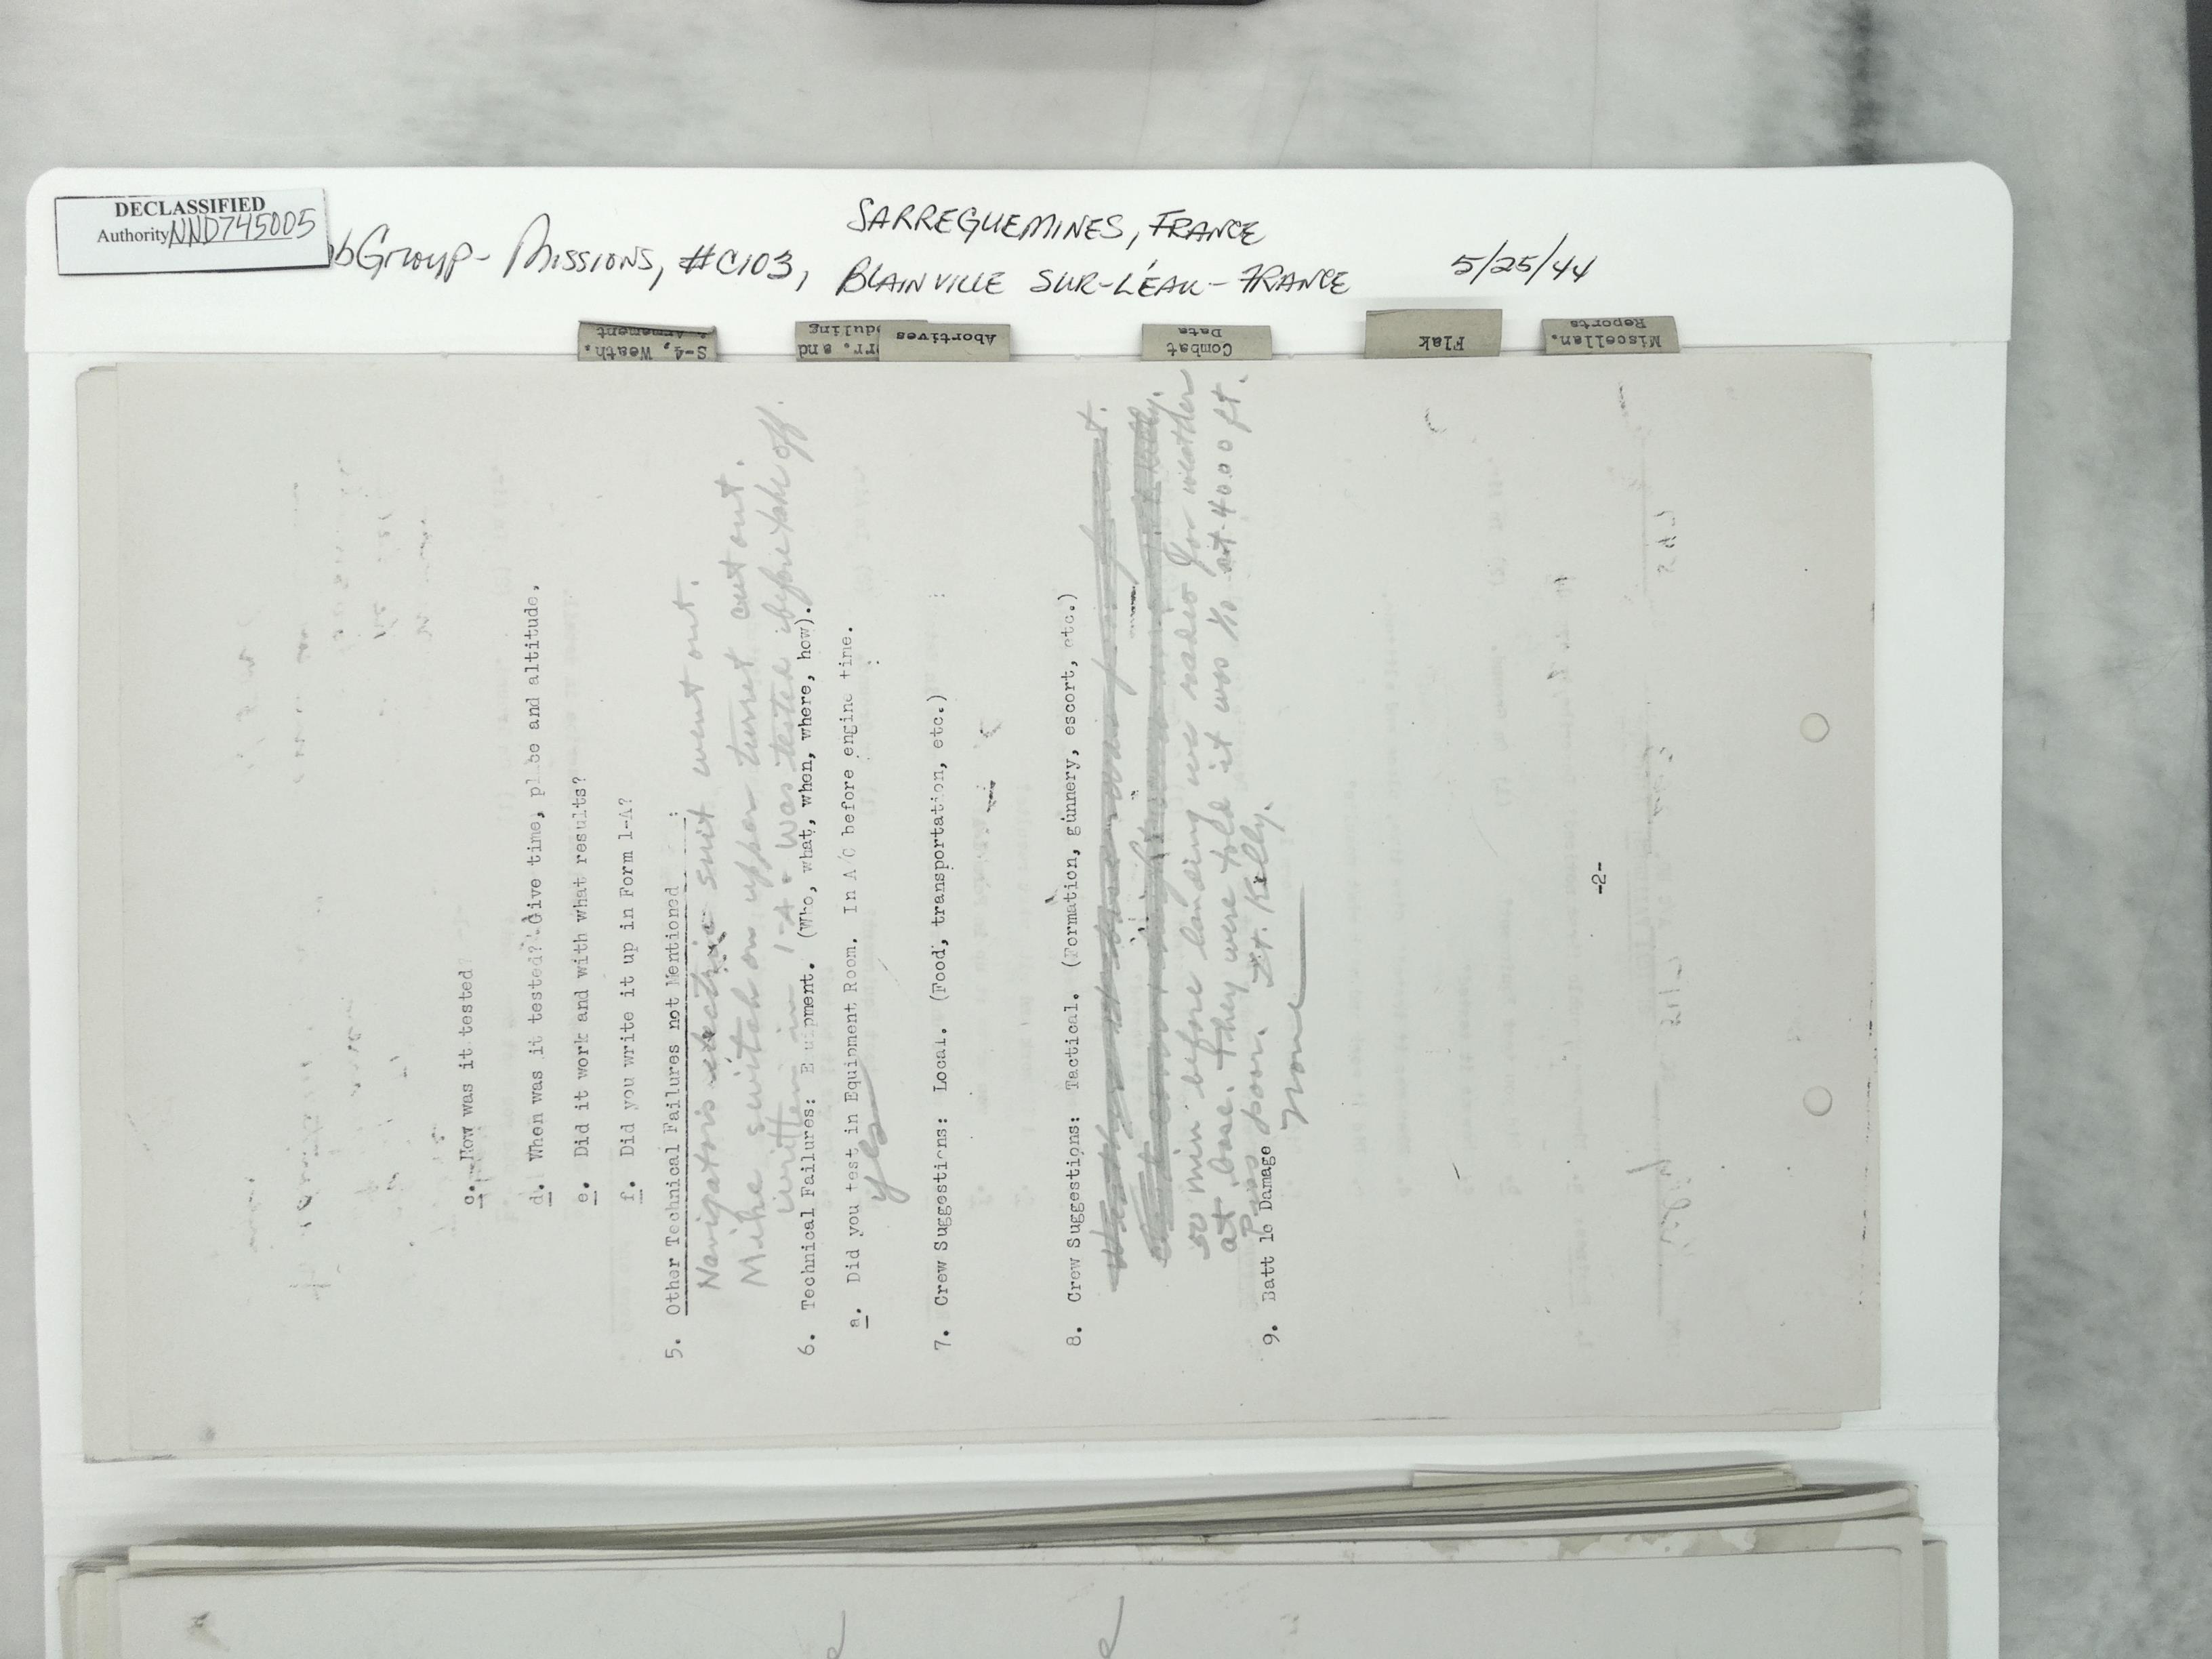 DECLASSIFIED
Authority NND745005
bGroup- Missions, #C103,
SARREGUEMINES, FRANCE
BLAINVILLE SUR-L'EAU-FRANCE
5/25/44
S-4, Weath.
& Armement
rr. and
duling
Abortives
Combat
Data
Flak
Miscellan.
Reports
c. How was it tested?
d. When was it tested? Give time, place and altitude.
e. Did it work and with what results?
f. Did you write it up in Form 1-A?
5. Other Technical Failures not Mentioned :
Navigators electric suit went out.
Mike switch on upper turret cut out.
written in 1-A - was tested before take off.
6. Technical Failures: Equipment. (Who, what, when, where, how).
a. Did you test in Equipment Room. In A/C before engine time.
yes
7. Crew Suggestions: Local. (Food, transportation, etc.)
8. Crew Suggestions: Tactical. (Formation, gunnery, escort, etc.)
50 min before landing we radio for weather
at base. They were told it was 1/10 at 4000 ft.
poor. Lt. Kelly.
9. Battle Damage
None
-2-